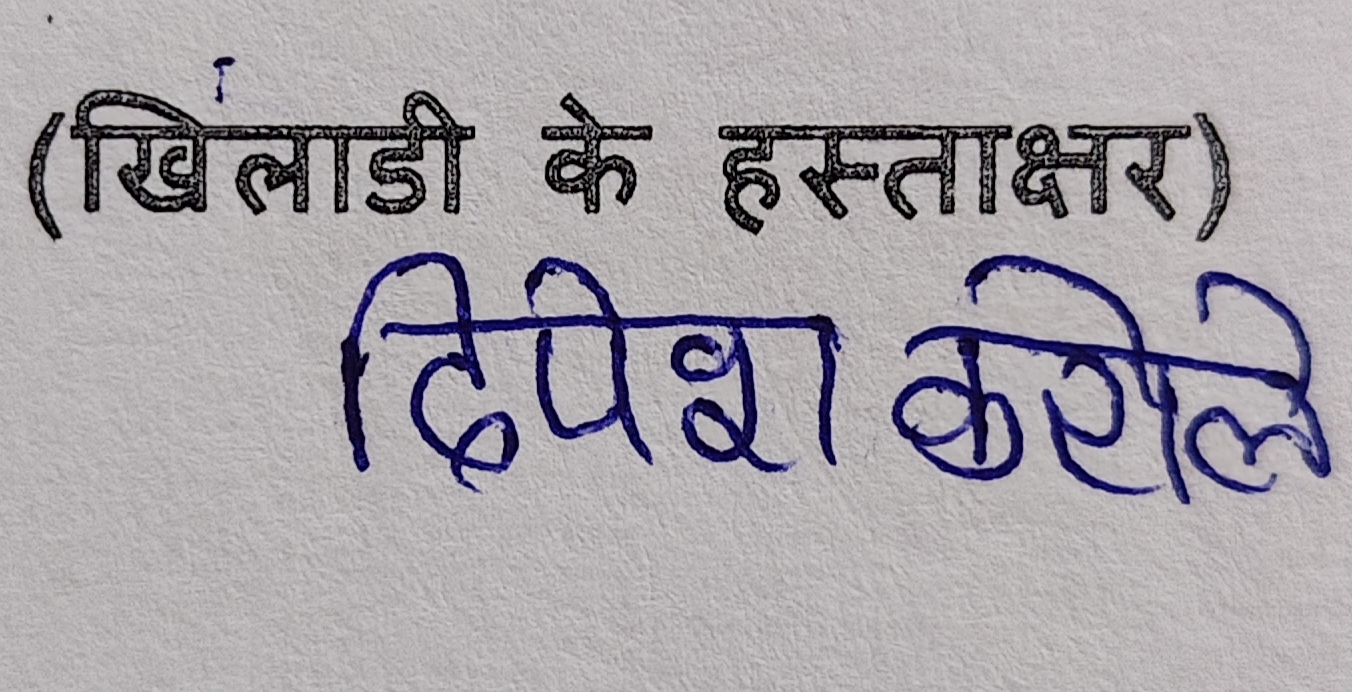 (खिलाडी के हस्ताक्षर)
दिपेश करोले